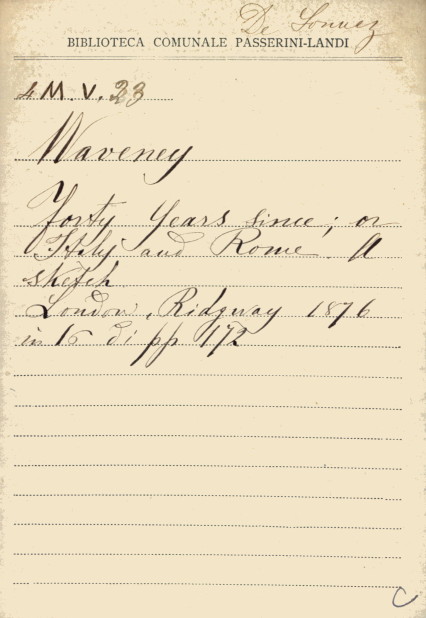 De
BIBLIOTECA COMUNALE PASSERINI-LANDI
4 M. V. 23
Waveney
Forty Years since; or
Italy and Rome. A
sketch
London, Ridgway 1876
in 16 di pp 172
C